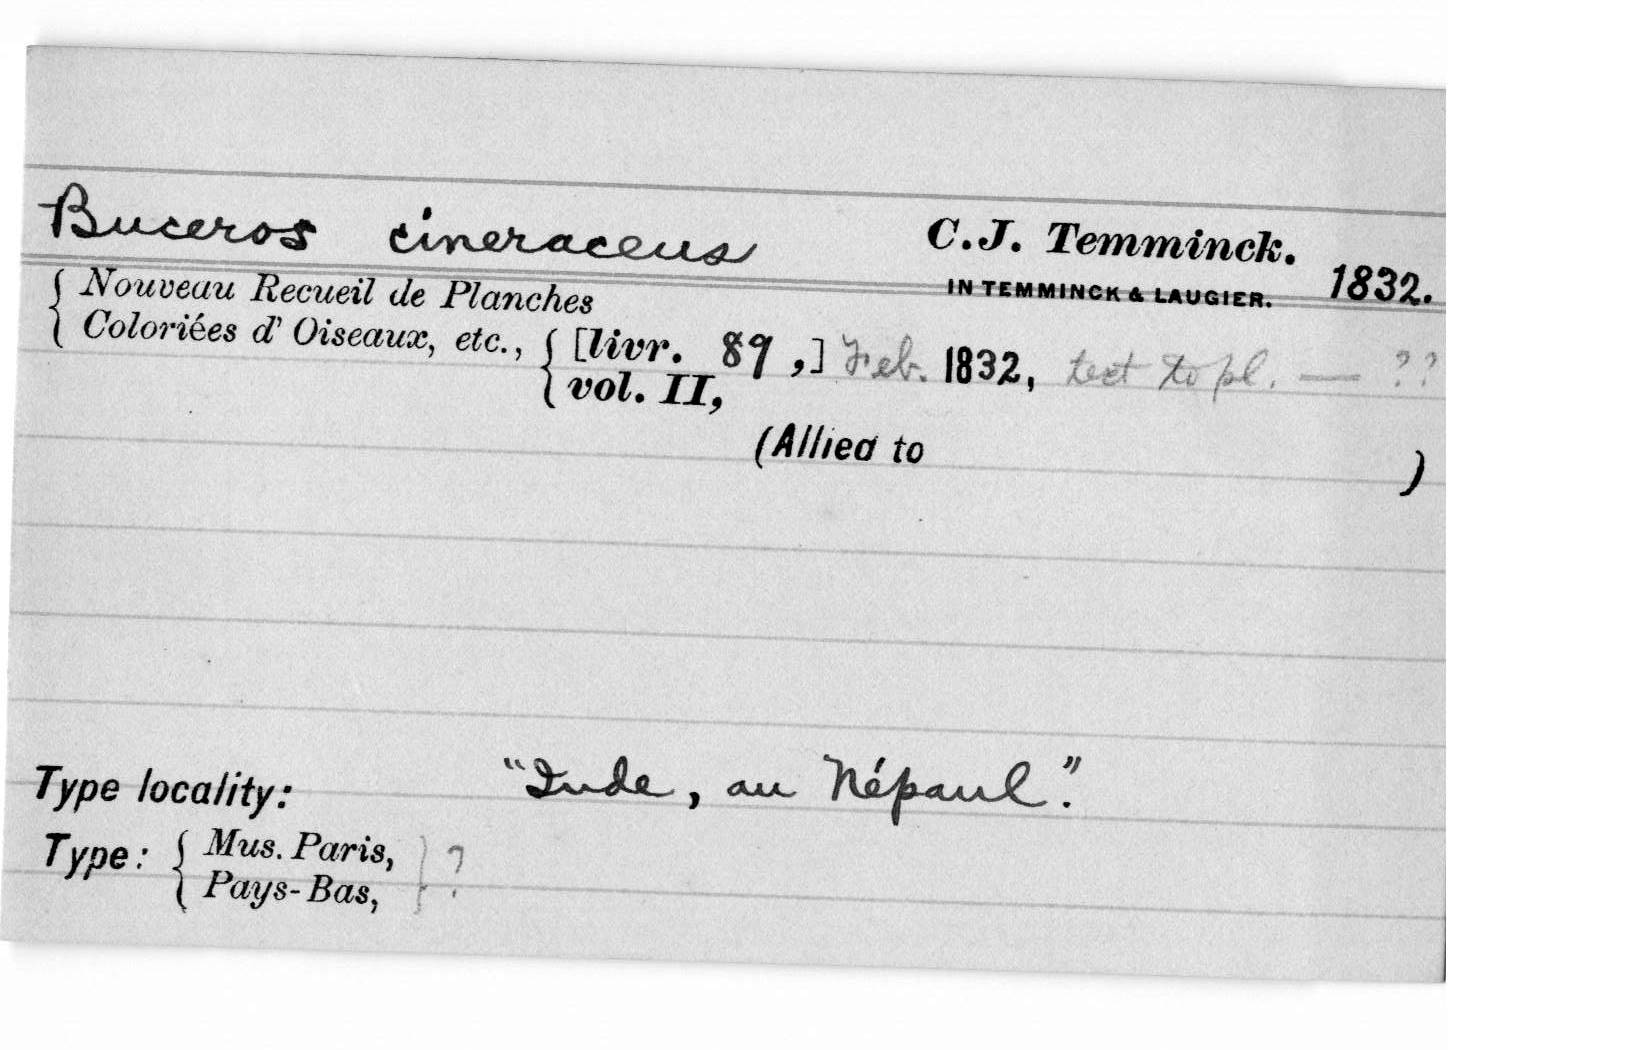 Buceros cineraceus C.J. Temminck.
IN TEMMINCK & LAUGIER. 1832.
{ Nouveau Recueil de Planches
{ Coloriées d' Oiseaux, etc., { [livr. 89 ,] Feb. 1832, text to pl. — ??
{ vol. II,
(Allied to )
Type locality: "Inde, au Népaul."
Type: { Mus. Paris, } ?
{ Pays-Bas,